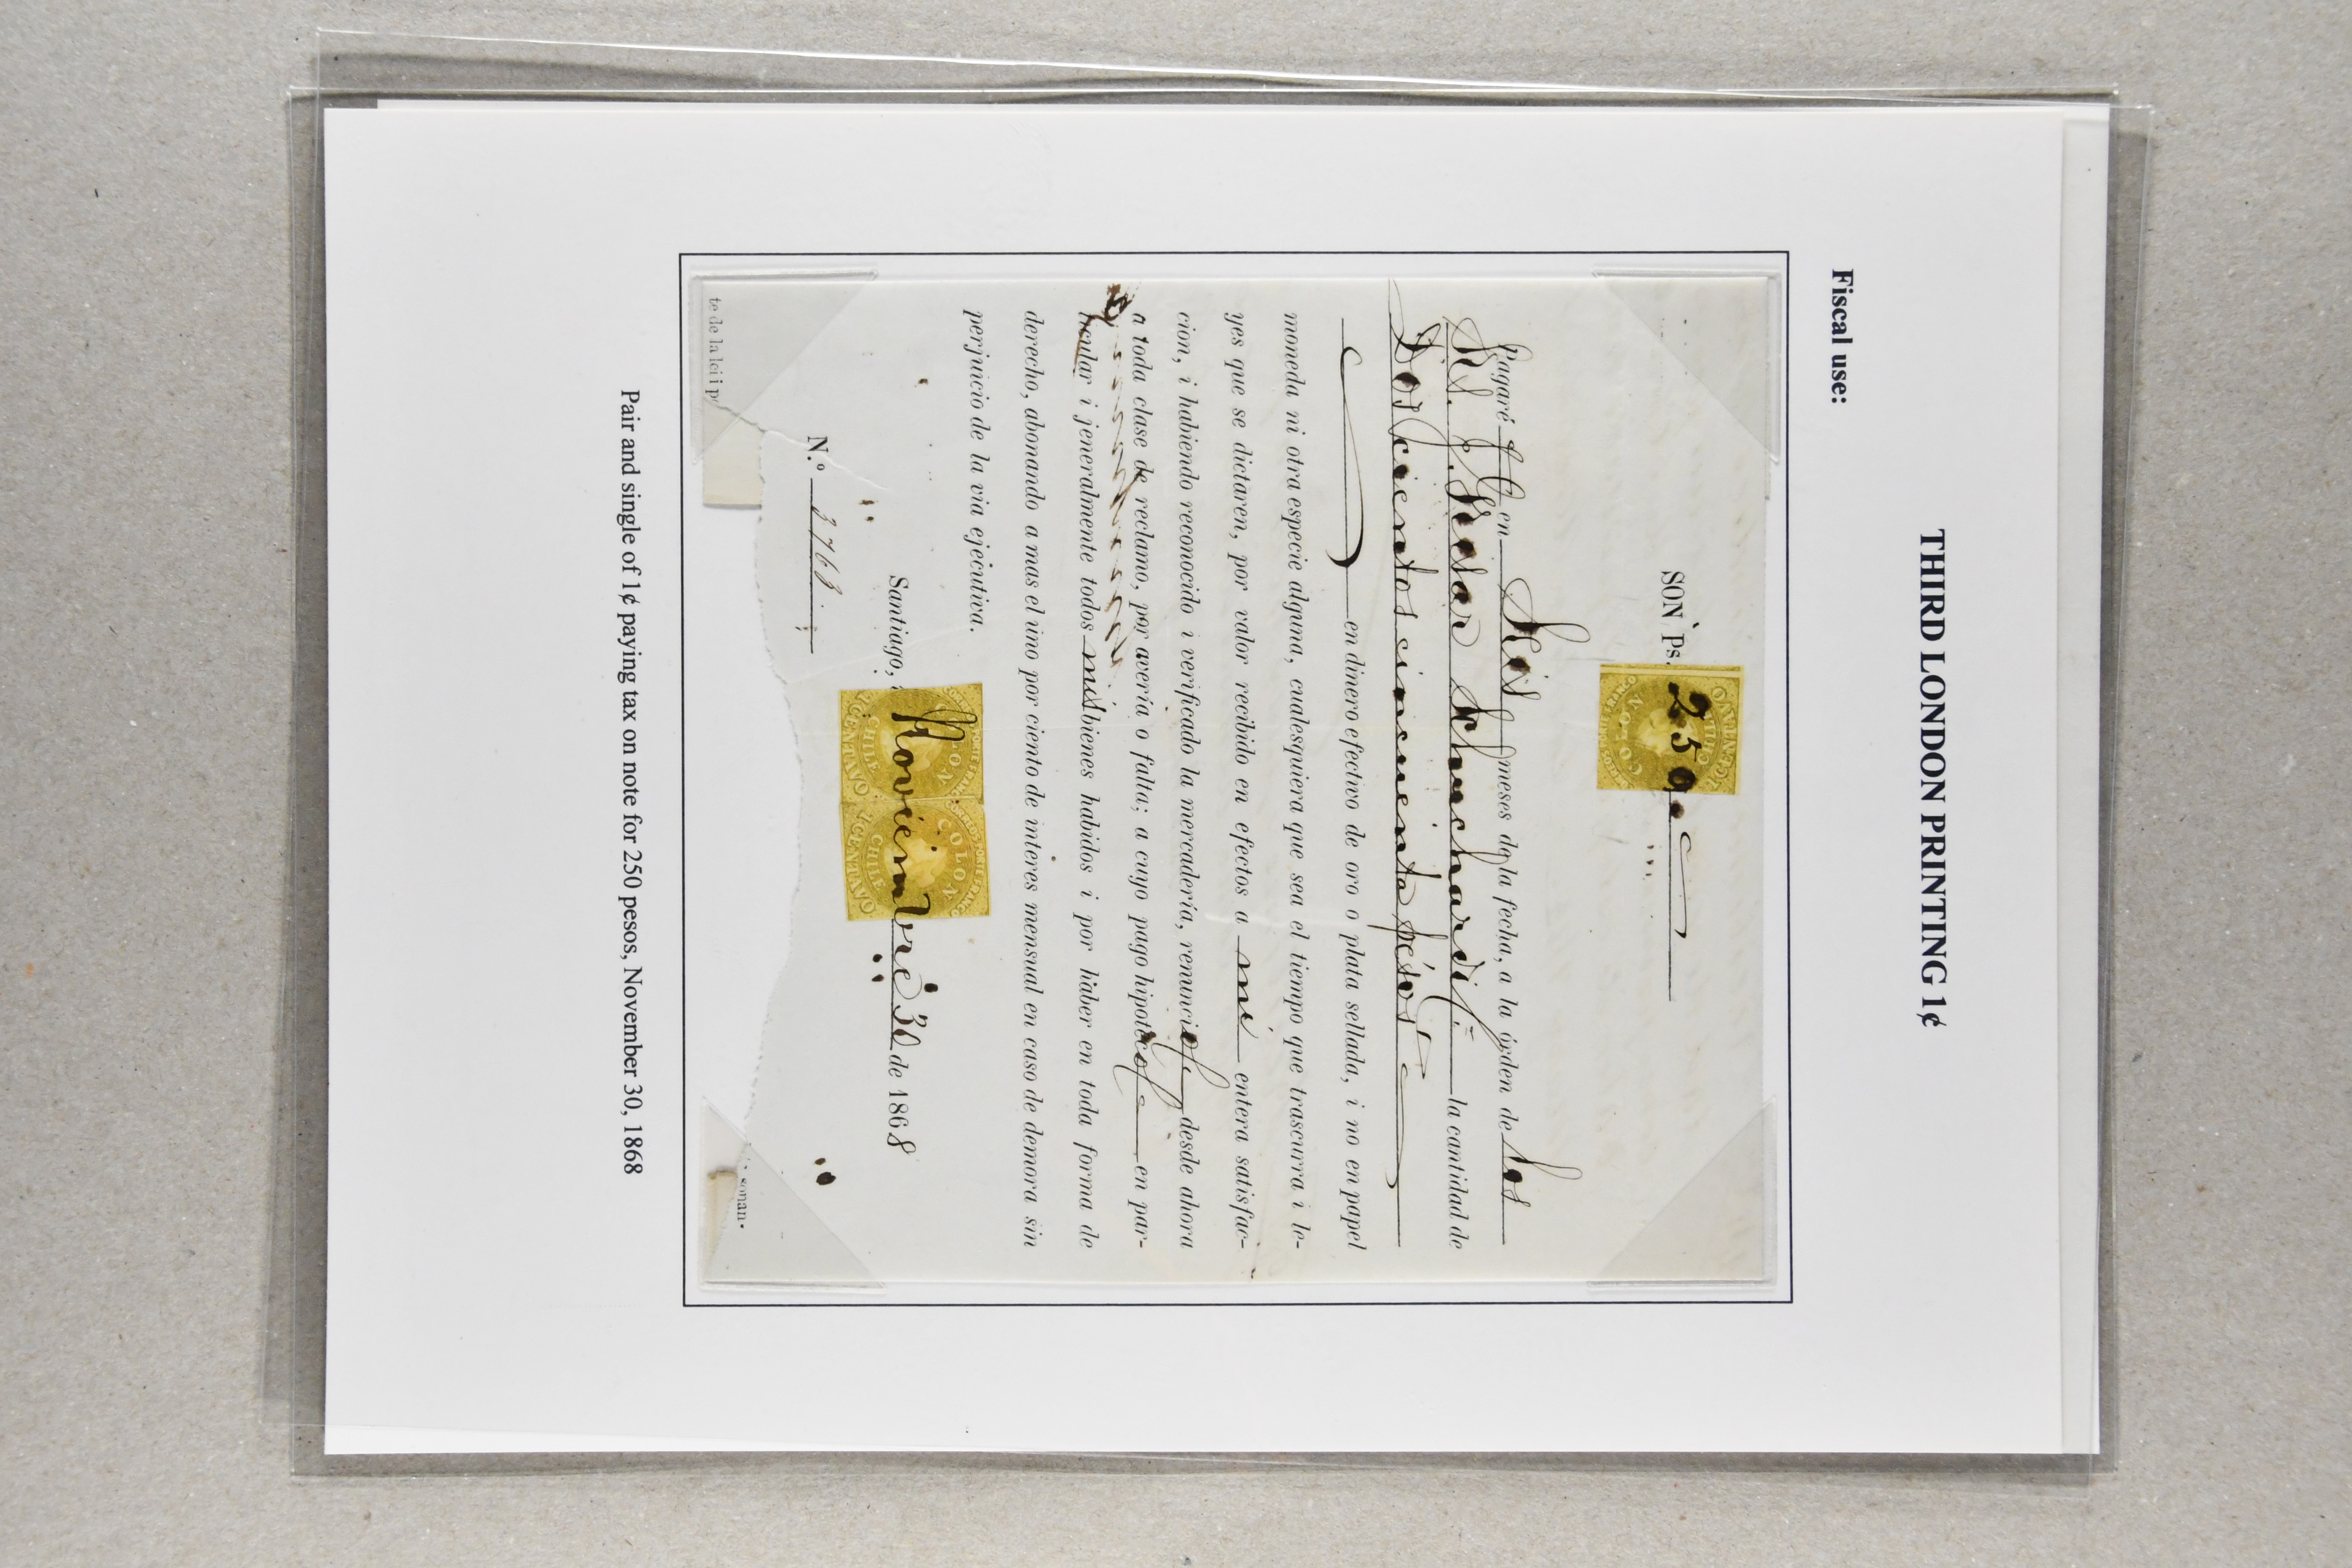 THIRD LONDON PRINTING 1¢
Fiscal use:
SON Ps. 250.
CENTAVO
COLON
Pagaré en Seis meses de la fecha, a la órden de los
Srs. la cantidad de
Doscientos cincuenta pesos
en dinero efectivo de oro o plata sellada, i no en papel
moneda ni otra especie alguna, cualesquiera que sea el tiempo que trascurra i le-
yes que se dictaren, por valor recibido en efectos a mi entera satisfac-
cion, i habiendo reconocido i verificado la mercadería, renuncio desde ahora
a toda clase de reclamo, por avería o falta; a cuyo pago hipoteco en par-
ticular i jeneralmente todos mis bienes habidos i por haber en toda forma de
derecho, abonando a mas el uno por ciento de interes mensual en caso de demora sin
perjuicio de la via ejecutiva.
Santiago, Noviembre 30 de 1868
COLON
CHILE
CENTAVO
COLON
CHILE
CENTAVO
N.º 3763
te de la lei i
sonan.
Pair and single of 1¢ paying tax on note for 250 pesos, November 30, 1868